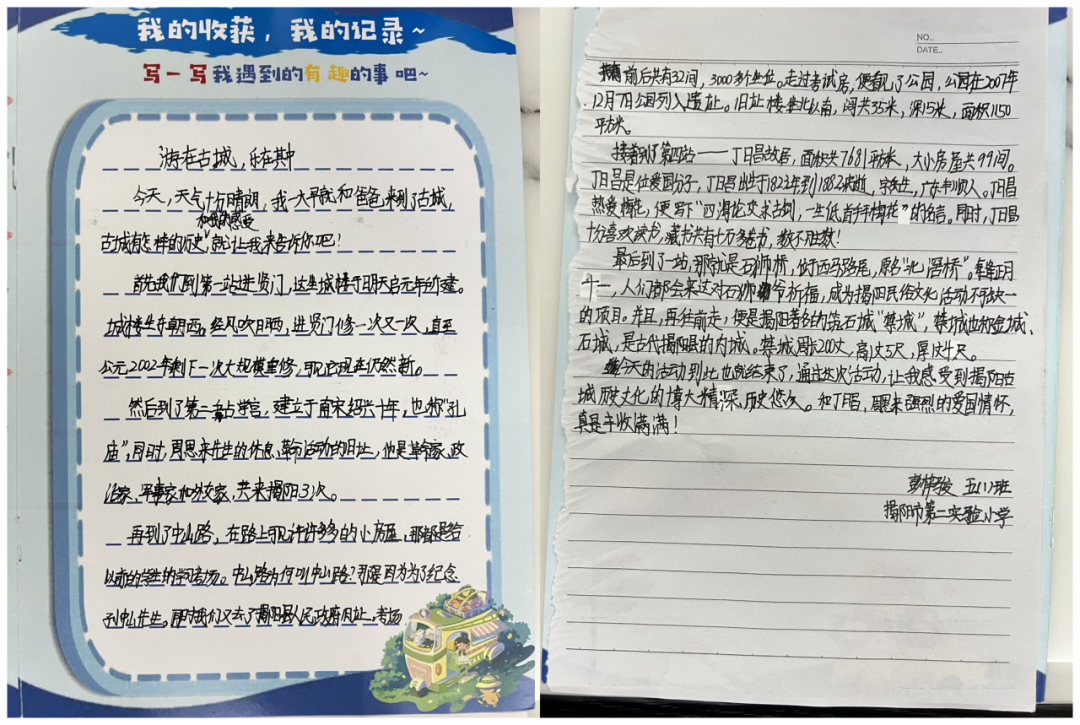 我的收获，我的记录~
写一写我遇到的有趣的事吧~
游在古城，乐在其中
今天，天气十分晴朗，我一大早就和爸爸来到了古城，
古城有怎样的历史和我的感受就让我来告诉你吧！
首先我们到第一站进贤门，这坐城楼于明天启元年所建。
城楼坐东朝西。经风吹日晒，进贤门修一次又一次，直至
公元2002年剩下一次大规模重修，可见它现在仍然新。
然后到了第二站学宫，建立于南宋绍兴十年，也称“孔
庙”，同时，周恩来先生的休息、革命活动的旧址，他是革命家、政
治家、军事家和外交家，共来揭阳3次。
再到了中山路，在路上可见许许多多的小房屋，那都是给
以前的学生的学习考场。中山路为何叫中山路？那是因为为了纪念
孙中山先生。同时我们又去了揭阳县人民政府旧址，考场
NO..
DATE..
前后共有32间，3000多外坐位。走过考试房，便看见了公园，公园在2007年
12月7日公园列入遗址。旧址楼坐北向南，阔共35米，深15米，面积1150
平方米。
接着到了第四站——丁日昌故居，面积共7681平方米，大小房屋共99间。
丁日昌是位爱国分子，丁日昌出生于1823年到1882年，广东丰顺人。丁日昌
热爱梅花，便写下“四海论交求古剑，一生低首拜梅花”的名言。同时，丁日昌
十分喜欢读书，藏书共有七万多卷书，数不胜数！
最后到了一站，那就是石狮桥，位于西马路尾，原名“北滘桥”。每年正月
十一，人们都会来这对石狮爷祈福，成为揭阳民俗文化活动不可缺一
的项目。并且，再往前走，便是揭阳著名的筑石城“禁城”，禁城也称金城、
石城，是古代揭阳县的内城。禁城周长200丈，高1丈5尺，厚1丈4尺。
今天的活动到此也就结束了，通过这次活动，让我感受到揭阳古
城历史文化的博大精深，历史悠久。和丁日昌，周恩来强烈的爱国情怀，
真是丰收满满！
五（1）班
揭阳市第二实验小学